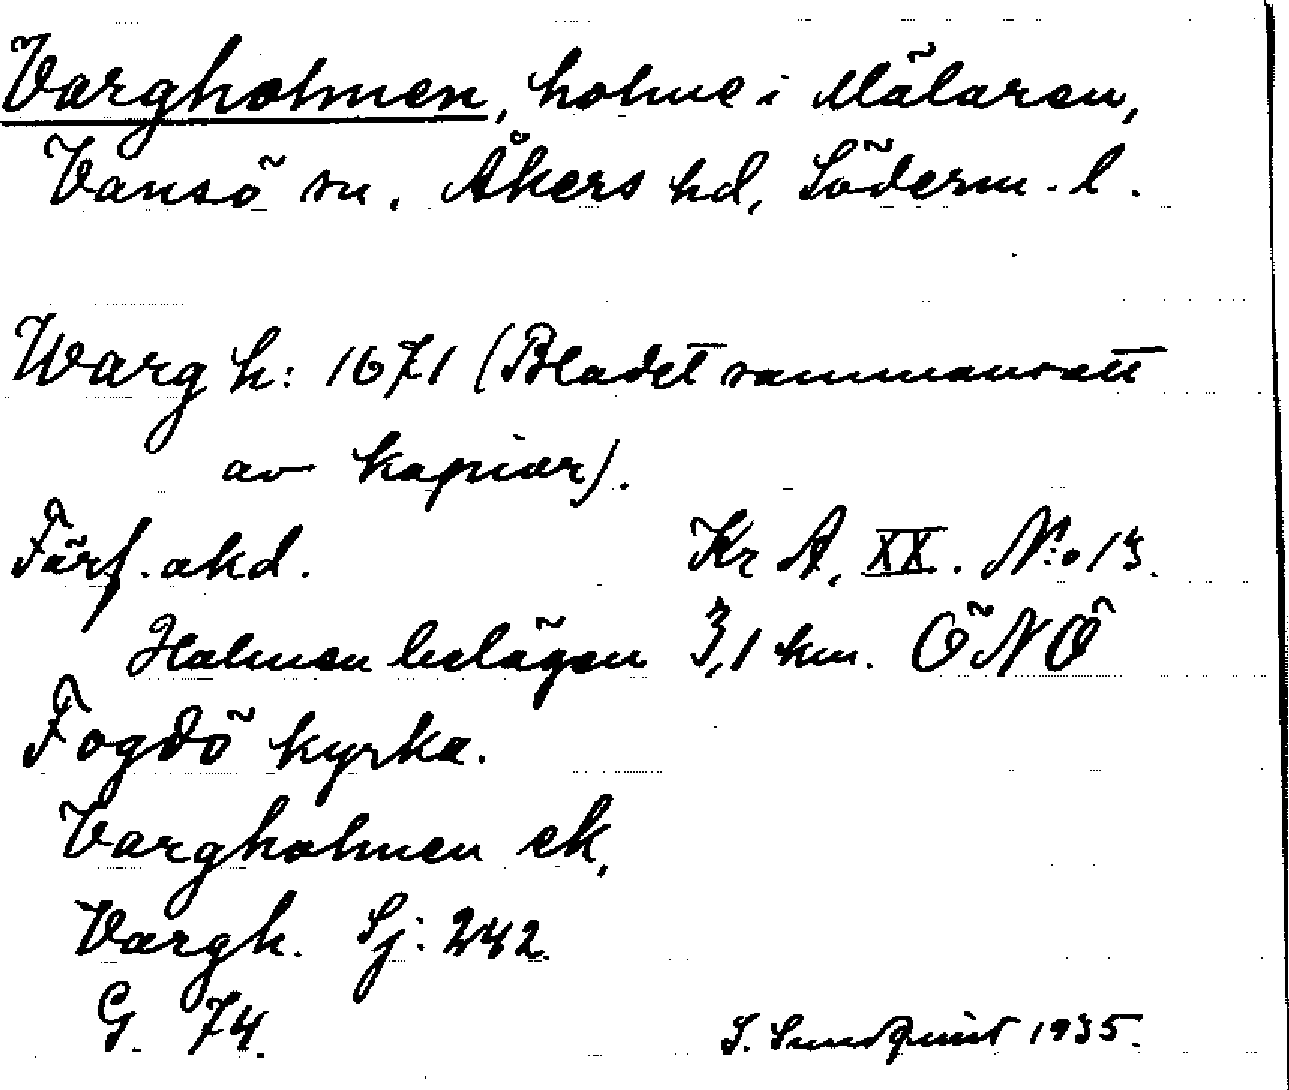 Vargholmen, holme i Mälaren,
Vansö sn. Åkers hd, Söderm. l.
Warg h: 1671 (Bladet sammansatt
av kopior).
Förf. okd. Kr A. XX. N:o 13.
Holmen belägen 3,1 km. ÖNÖ
Fogdö kyrka.
Vargholmen ek,
Vargh. Sj: 242.
G. 74.
S. Sundquist 1935.